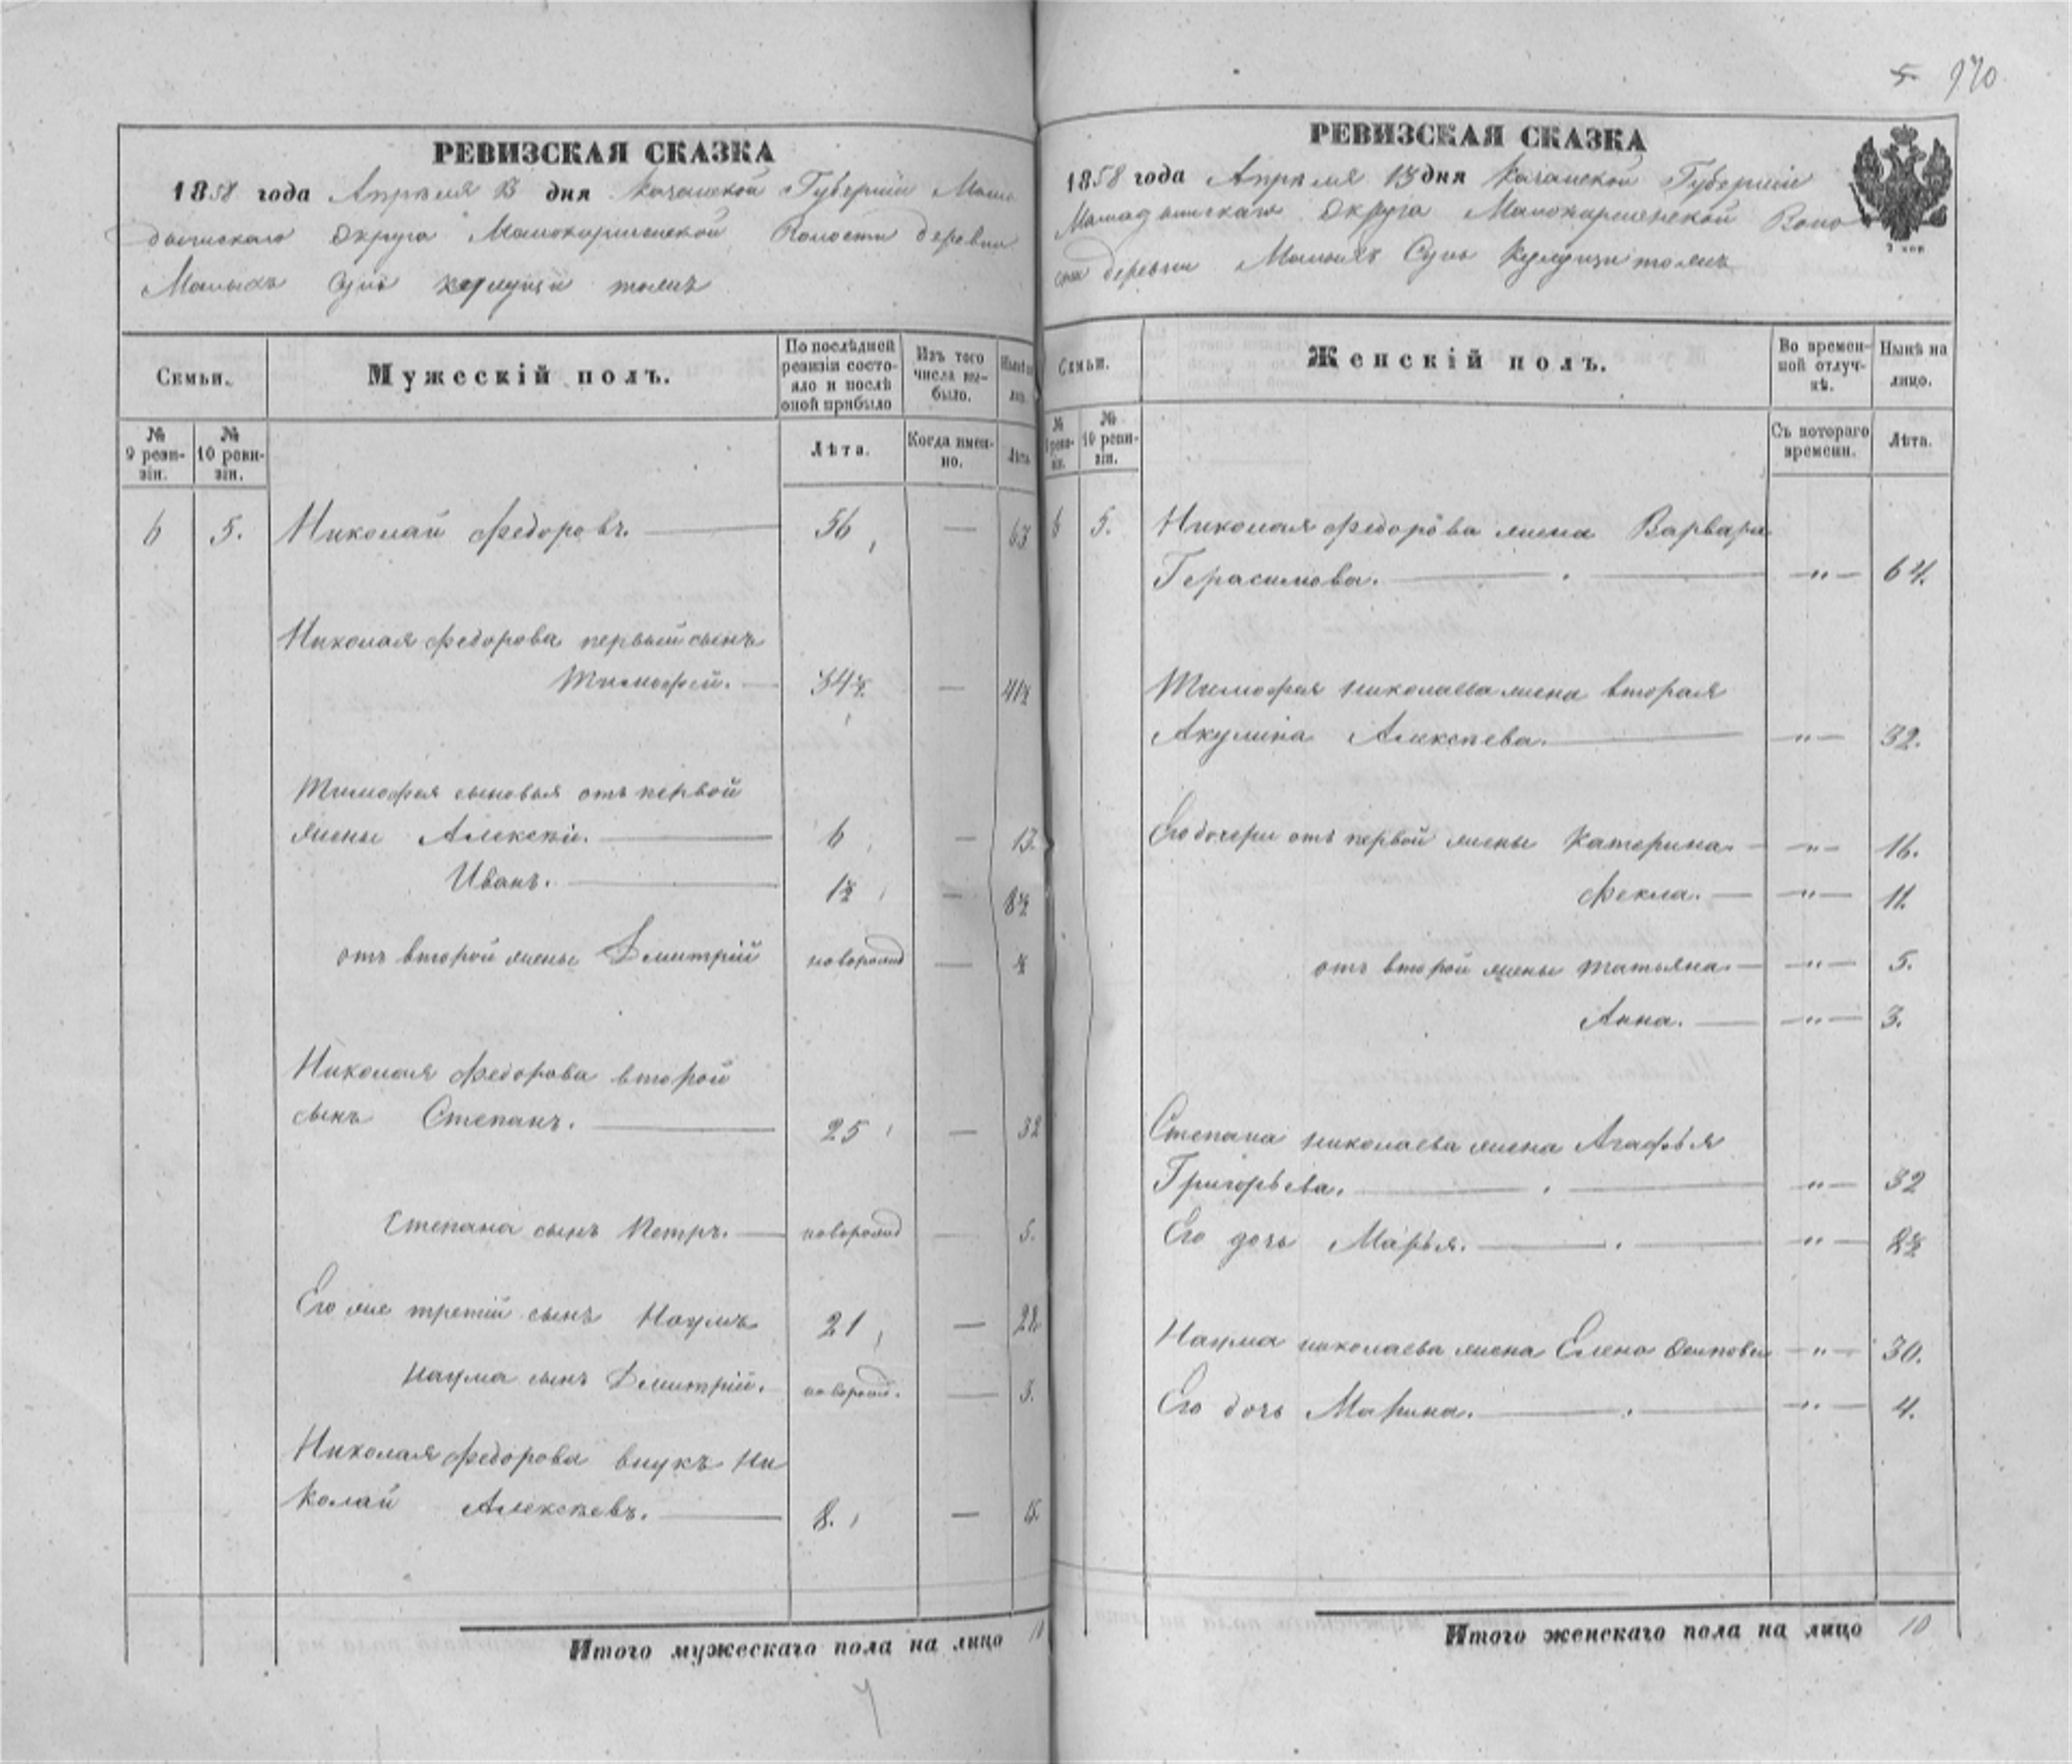 5. 970
РЕВИЗСКАЯ СКАЗКА
1858 года Апреля 13 дня Казанской Губерніи Мама
дышскаго Округа Волости деревни
Малыхъ Сунь
Семьи.
Мужескій полъ.
По послѣдней ревизіи состояло и послѣ оной прибыло
Изъ того числа выбыло.
№ 9 ревизіи.
№ 10 ревизіи.
Лѣта.
Когда именно.
Лѣта
6 5. Николай Федоровъ. 56 — 63
Николая Федорова первый сынъ
Тимофей. 34½ — 41½
Тимофея сыновья отъ первой
жены Алексѣй. 6 — 13.
Иванъ. 1½ — 8½
отъ второй жены Дмитрійноворожд — ½
Николая Федорова второй
сынъ Степанъ. 25 — 32
Степана сынъ Петръ. новорожд — 5.
Его же третій сынъ Наумъ 21 — 28.
Наума сынъ Дмитрій. новорожд. — 3.
Николая Федорова внукъ Ни
колай Алексѣевъ. 8. — 15.
Итого мужескаго пола на лицо
РЕВИЗСКАЯ СКАЗКА
1858 года Апреля 13 дня Казанской Губерніи
Мамадышскаго Округа Воло
сти деревни Малыхъ Сунь
2 коп
Семьи.
Женскій полъ.
Во временной отлучкѣ.
Нынѣ на лицо.
№ 10 ревизіи.
Съ котораго времени.
Лѣта.
6 5. Николая Федорова жена Варвара
Герасимова. —"— 64.
Тимофея Николаева жена вторая
Акулина Алексѣева. —"— 32.
Его дочери отъ первой жены Катерина. —"— 16.
Фекла. —"— 11.
отъ второй жены Татьяна. —"— 5.
Анна. —"— 3.
Степана Николаева жена Агафья
Григорьева. —"— 32
Его дочь Марья. —"— 8½
Наума Николаева жена Елена Осипова —"— 30.
Его дочь Марина. —"— 4.
Итого женскаго пола на лицо 10